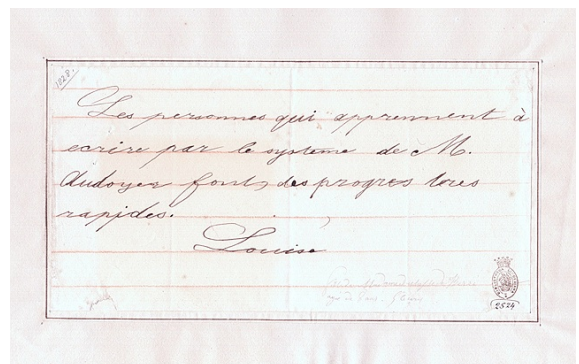 1828.
Les personnes qui apprennent à
ecrire par le systeme de M.
Audoyer font, des progres tres
rapides.
Louise
2524